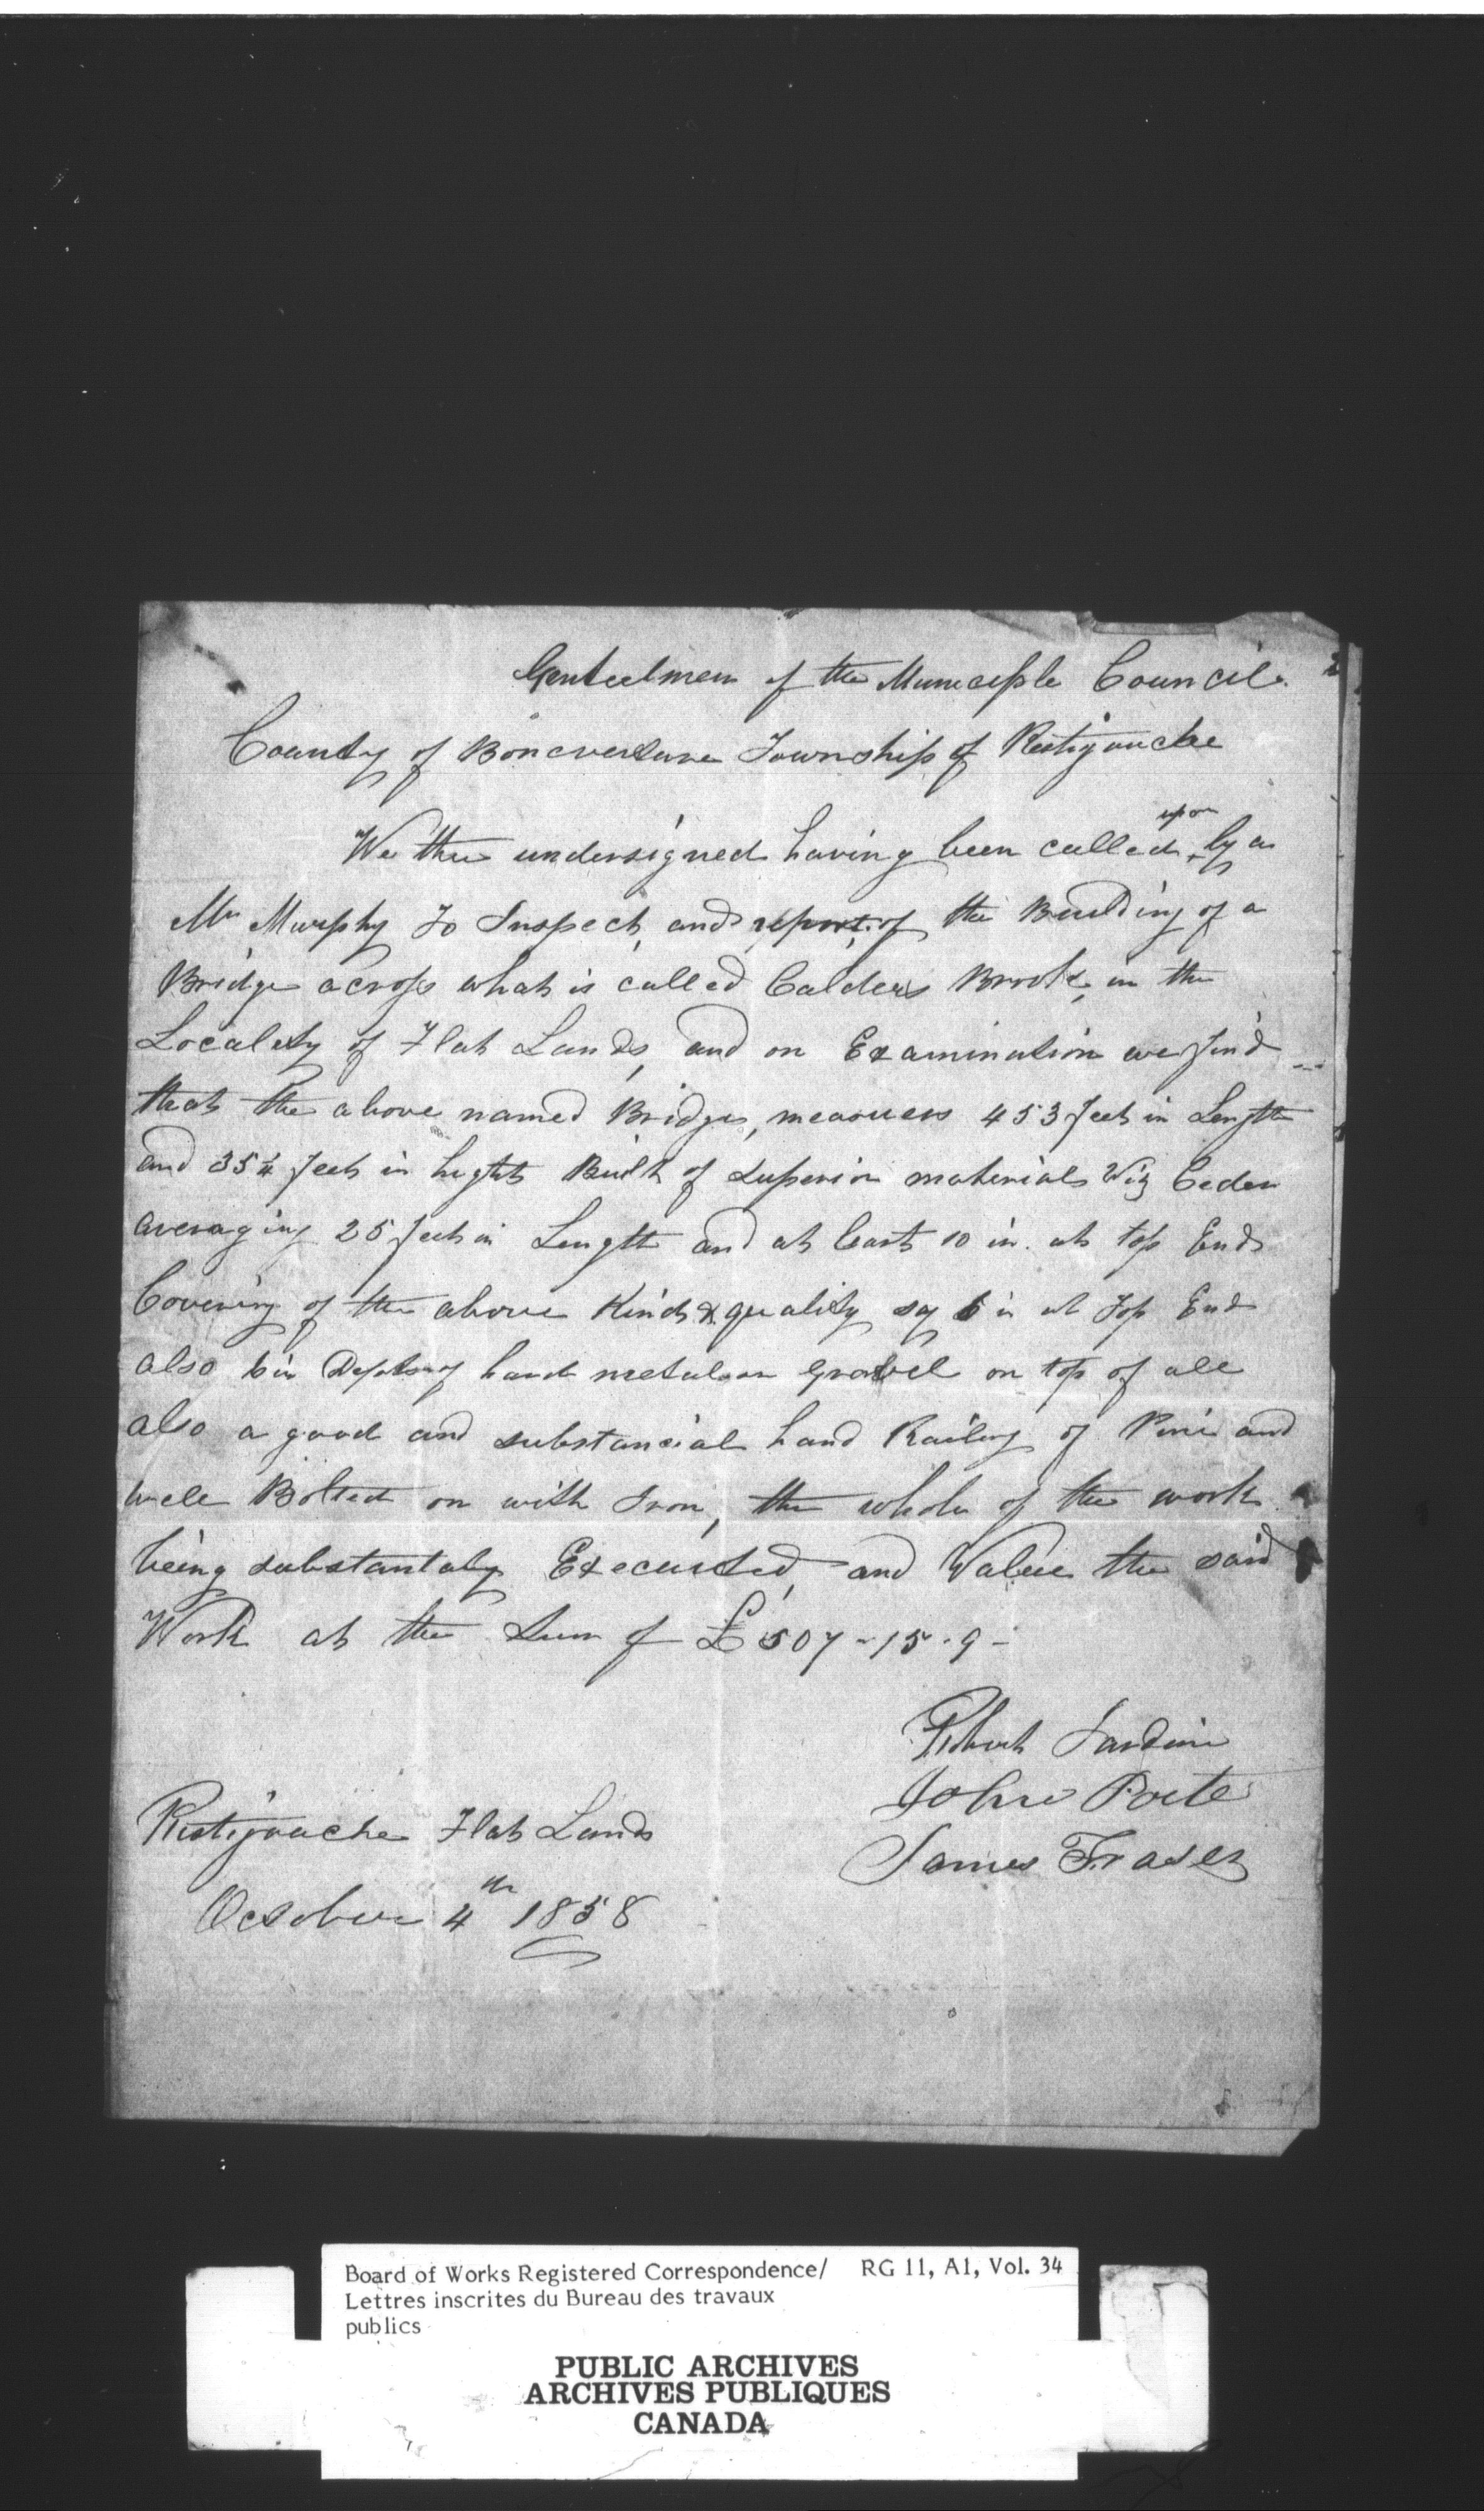 Genteelmen of the Municiple Council
County of Boneventure Township of Restigouche
We the undersigned having been called upon by a
Mr Murphy To Inspect and report of the Building of a
Bridge across what is called Calders Brook, in the
Locality of Flat Lands, and on Examination we find
that the above named Bridge, measures 453 feet in Length
and 35 1/4 feet in hight Built of superior materials Viz Ceder
averaging 25 feet in Length and at least 10 in. at top End
Covering of the above Kind & quality sq 6 in at Top End
also 6 in Depth of hard metal or gravel on top of all
also a good and substancial hand Railing of Pine and
well Bolted on with Iron, the whole of the work
being substantaly Executed, and Value the said
Work at the Sum of £507-15-9-
Robert Jardine
John Porte
James Fraser
Restigouche Flat Lands
October 4th 1858
Board of Works Registered Correspondence/ RG 11, A1, Vol. 34
Lettres inscrites du Bureau des travaux
publics
PUBLIC ARCHIVES
ARCHIVES PUBLIQUES
CANADA